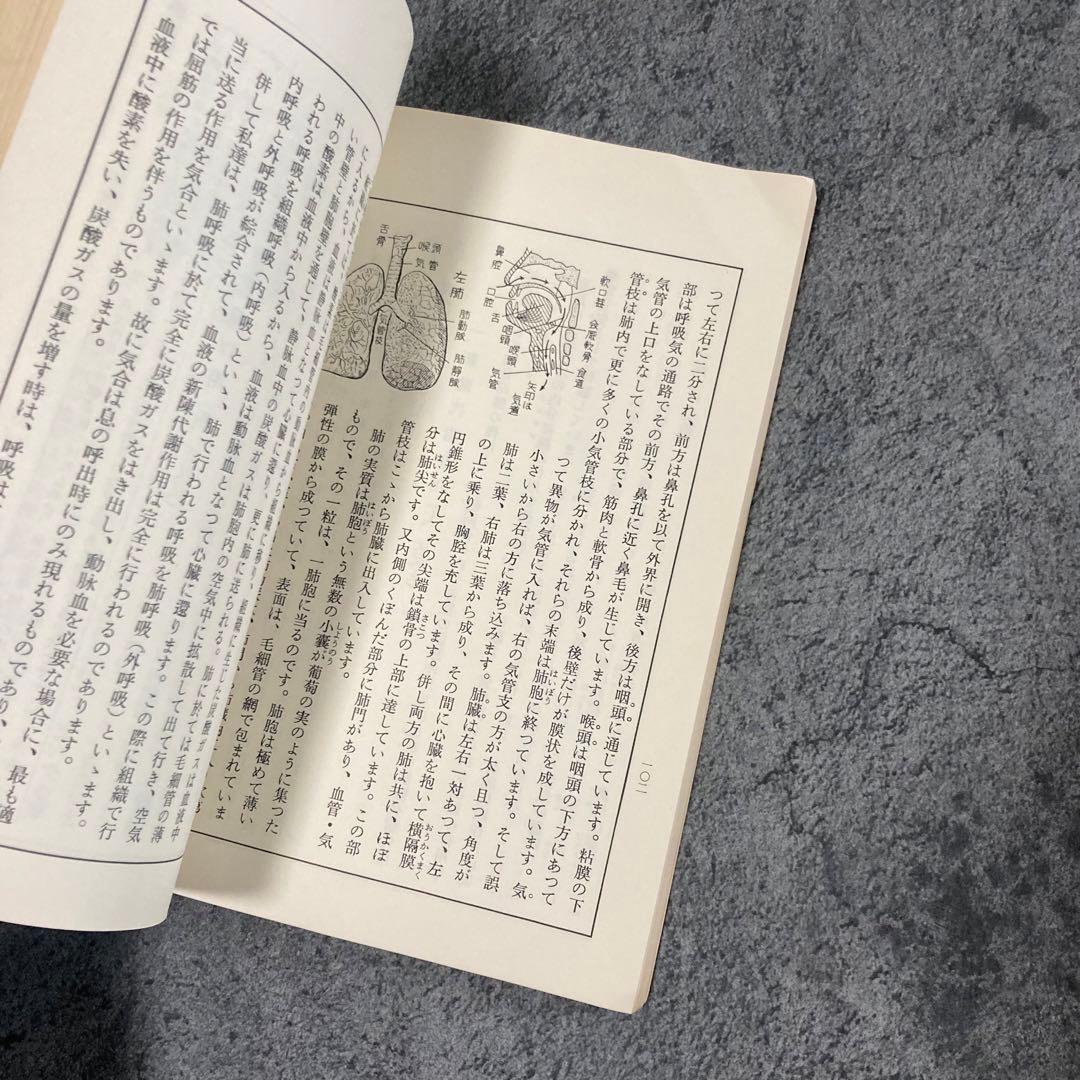 一〇二
つて左右に二分され、前方は鼻孔を以て外界に開き、後方は咽頭に通じています。粘膜の下
部は呼吸気の通路でその前方、鼻孔に近く鼻毛が生じています。喉頭は咽頭の下方にあつて
気管の上口をなしている部分で、筋肉と軟骨から成り、後壁だけが膜状を成しています。気
管枝は肺内で更に多くの小気管枝に分かれ、それらの末端は肺胞に終つています。そして誤
つて異物が気管に入れば、右の気管支の方が太く且つ、角度が
小さいから右の方に落ち込みます。肺臓は左右一対あつて、左
肺は二葉、右肺は三葉から成り、その間に心臓を抱いて横隔膜
の上に乗り、胸腔を充しています。併し両方の肺は共に、ほぼ
円錐形をなしてその尖端は鎖骨の上部に達しています。この部
分は肺尖です。又内側のくぼんだ部分に肺門があり、血管・気
管枝はこゝから肺臓に出入しています。
肺の実質は肺胞という無数の小嚢が葡萄の実のように集つた
もので、その一粒は、一肺胞に当るのです。肺胞は極めて薄い
弾性の膜から成つていて、表面は、毛細管の網で包まれていま
軟口蓋
会厭軟骨
食道
鼻腔
口腔
舌
咽頭
喉頭
気管
矢印は
気道
舌骨
喉頭
気管
左肺
肺動脈
肺静脈
管枝
い管壁と肺胞壁を通じて、静脈血中の炭酸ガスは肺胞内の空気中に拡散して出て行き、空気
中の酸素は血液中から入るから、血液は動脈血となつて心臓に還ります。この際に組織で行
われる呼吸を組織呼吸（内呼吸）といい、肺で行われる呼吸を肺呼吸（外呼吸）といゝます。
内呼吸と外呼吸が綜合されて、血液の新陳代謝作用は完全に行われるのであります。
併して私達は、肺呼吸に於て完全に炭酸ガスをはき出し、動脈血を必要な場合に、最も適
当に送る作用を気合といゝます。故に気合は息の呼出時にのみ現れるものであり、
では屈筋の作用を伴うものであります。
血液中に酸素を失い、炭酸ガスの量を増す時は、呼吸は